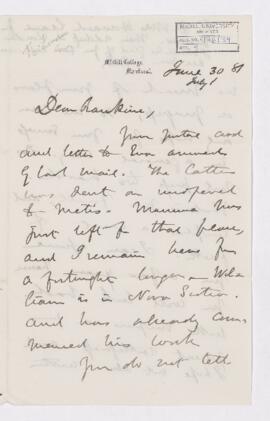 McGill College,
Montreal.
June 30 81
July 1
Dear Rankine,
Your postcard
and letter to Eva arrived
by last mail. The latter
was sent on unopened
to Metis. Mamma has
just left for that place,
and I remain here for
a fortnight longer. Wil-
liam is in Nova Scotia
and has already com-
menced his work
You do not tell